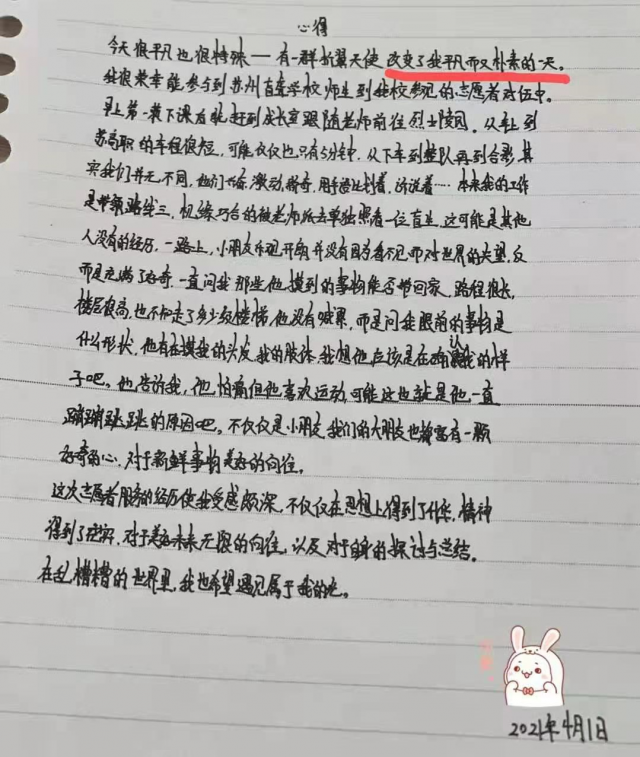 心得
今天很平凡也很特殊——有一群折翼天使改变了我平凡而又朴素的一天。
我很荣幸能参与到苏州盲聋学校师生到我校参观的志愿者队伍中。
早上第一节下课后就赶到成长室跟随老师前往烈士陵园。从车上到
苏高职的车程很短,可能仅仅也只有5分钟,从下车到整队再到合影,其
实我们并无不同,他们兴奋,激动,稀奇,用手语比划着,诉说着……本来我的工作
是带领路线三,机缘巧合的被老师派去单独照看一位盲生,这可能是其他
人没有的经历,一路上,小朋友乐观开朗并没有因为看不见而对世界的失望,反
而是充满了好奇,一直问我那些他摸到的事物能否带回家,路程很长,
楼层很高,也不知走了多少级楼梯,他没有喊累,而是问我眼前的事物是
什么形状,他有在摸我的头发,我的肢体,我想他应该是在确认我的样
子吧。他告诉我,他怕痛但他喜欢运动,可能这也就是他一直
蹦蹦跳跳的原因吧。不仅仅是小朋友,我们的大朋友也都富有一颗
好奇的心,对于新鲜事物美好的向往。
这次志愿者服务的经历使我受感颇深,不仅仅在思想上得到了升华,精神
得到了充实,对于美好未来无限的向往,以及对于自身的探讨与总结。
在乱糟糟的世界里,我也希望遇见属于我的光。
2021年4月1日